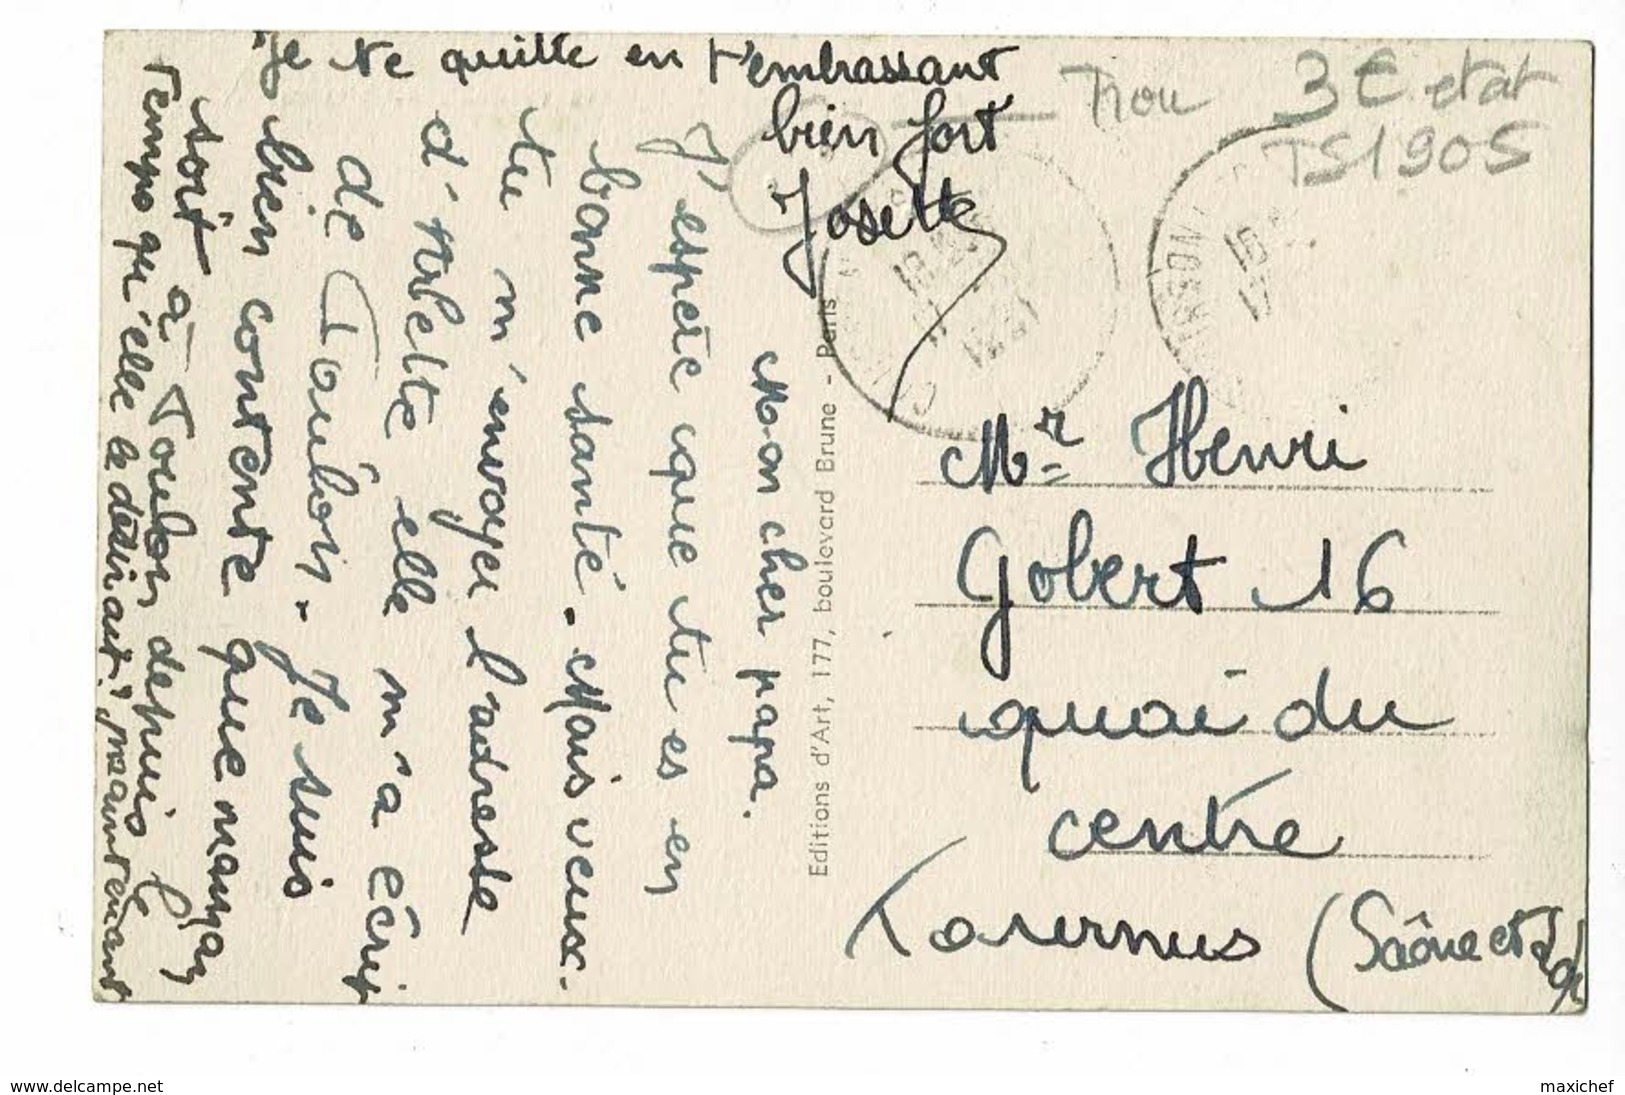 Mon cher papa.
J'espère que tu es en
bonne santé. Mais veux-
tu m'envoyer l'adresse
d'Arlette elle m'a écrit
de Toulon. Je suis
bien contente que maman
soit à Toulon depuis le
temps qu'elle le désirait; maintenant
je te quitte en t'embrassant
bien fort
Josette
Editions d'Art, 177, boulevard Brune - Paris
Trou
3€ etat
TS1905
Mr Henri
Gobert 16
quai du
centre
Tournus (Saône et Loir
www.delcampe.net
maxichef